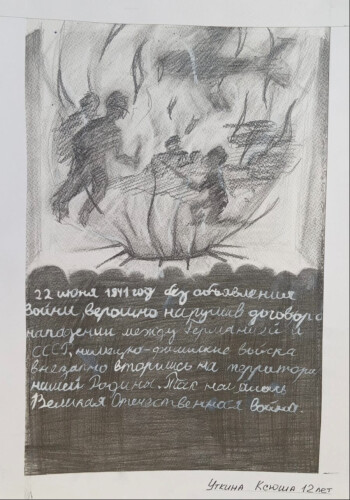 22 июня 1941 год без объявления
войны, верошно нарушив договор о
нападении между Германией и
СССР, немецко-фашиские войска
внезапно вторишсь на терретора
нашей Родины. Так началась
Великая Отечественная война.
Уткина Ксюша 12 лет